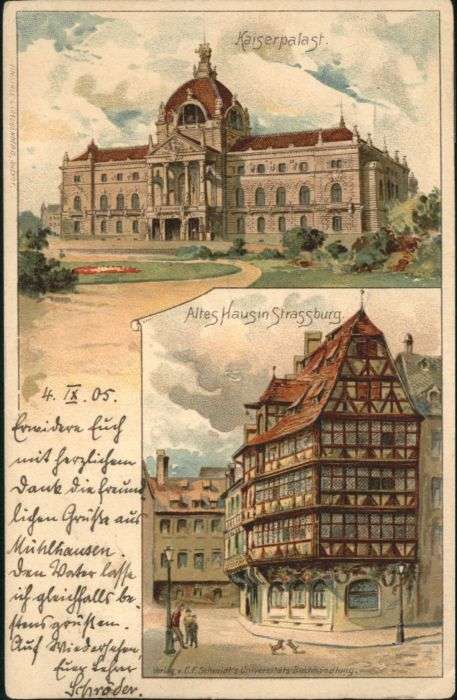 Kaiserpalast.
Altes Haus in Strassburg.
4. IX. 05.
Erwidere Euch
mit herzlichem
Dank die freund
lichen Grüße aus
Mühlhausen.
Den Vater lasse
ich gleichfalls be-
stens grüßen.
Auf Wiedersehen
Euer Lehrer
Schröder.
Verlag v. C.F. Schmidt's Universitäts-Buchhandlung.